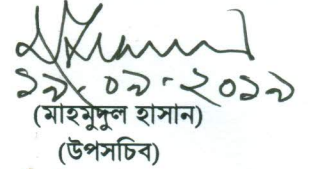 ১৯.০৯.২০১৯
(মাহমুদুল হাসান)
(উপসচিব)